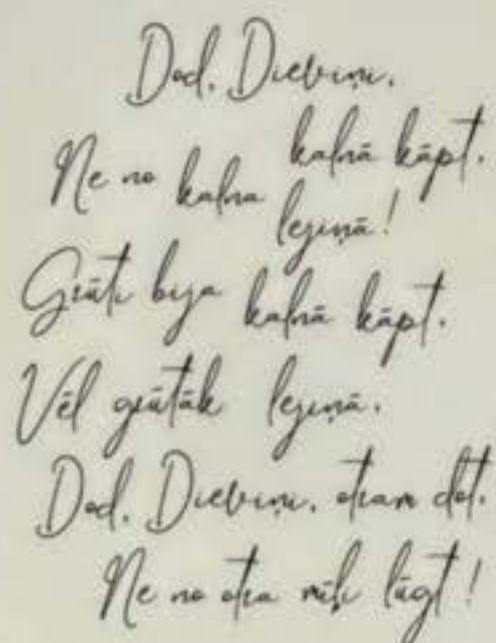 Dod, Dieviņi,
kalnā kāpt,
Ne no kalna
lejiņā!
Grūti bija kalnā kāpt,
Vēl grūtāk lejiņā.
Dod, Dieviņi, otram dot,
Ne no otra mīļi lūgt!